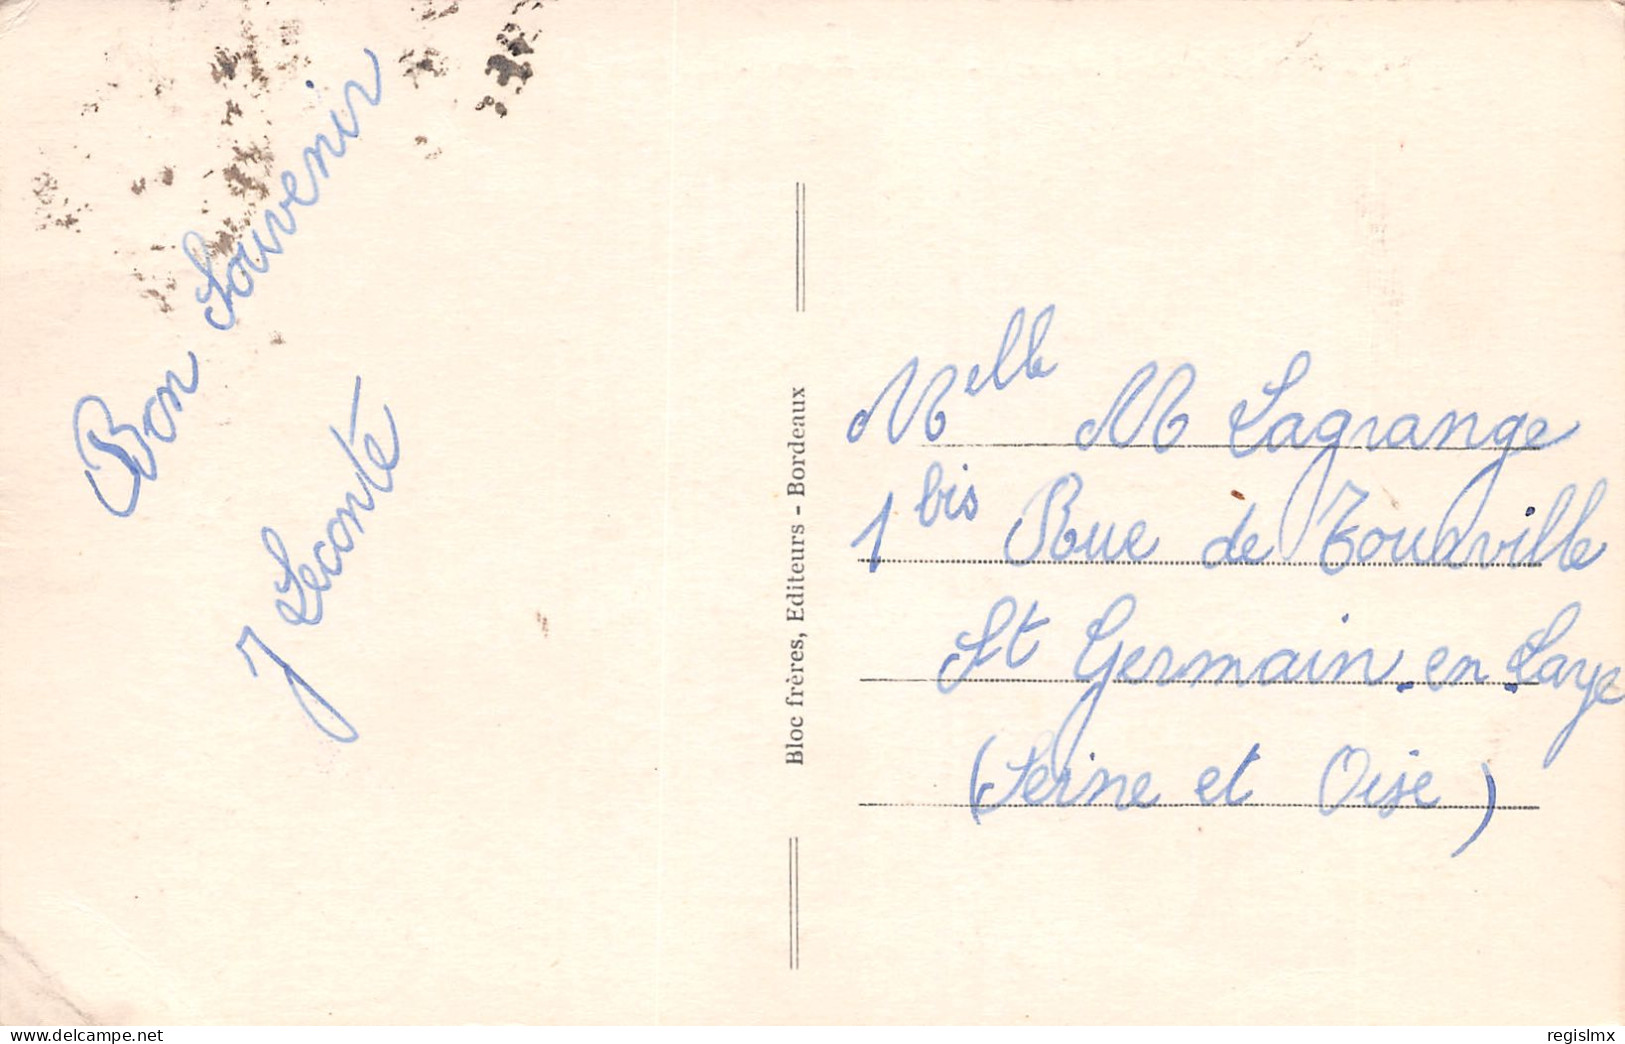 Bon Souvenir
J Leconte
Bloc frères, Editeurs - Bordeaux
Melle M Lagrange
1 bis Rue de Tourville
St Germain-en-Laye
(Seine et Oise)
www.delcampe.net
regislmx